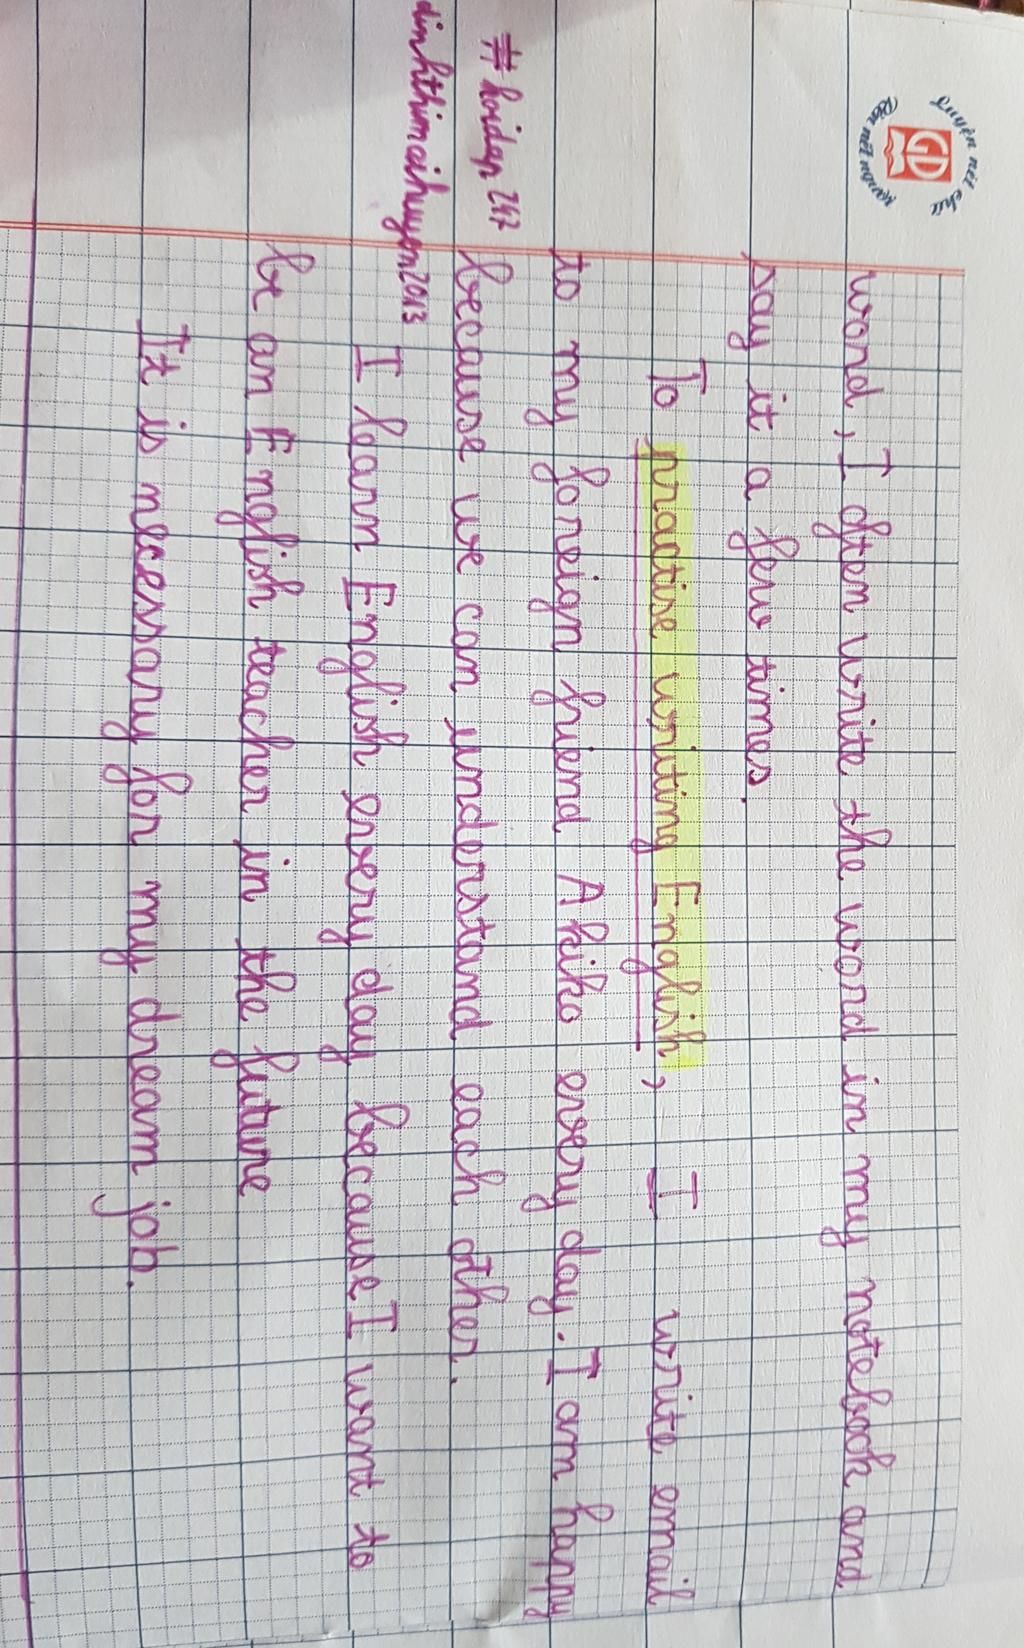 Luyện nét chữ
GD
Rèn nết người
word, I often write the word in my notebook and
say it a few times.
To practise writing English, I write email
to my foreign friend Akiko every day. I am happy
because we can understand each other.
I learn English every day because I want to
be an English teacher in the future
It is necessary for my dream job.
# hoidap 247
dinhthimaihuyen2013